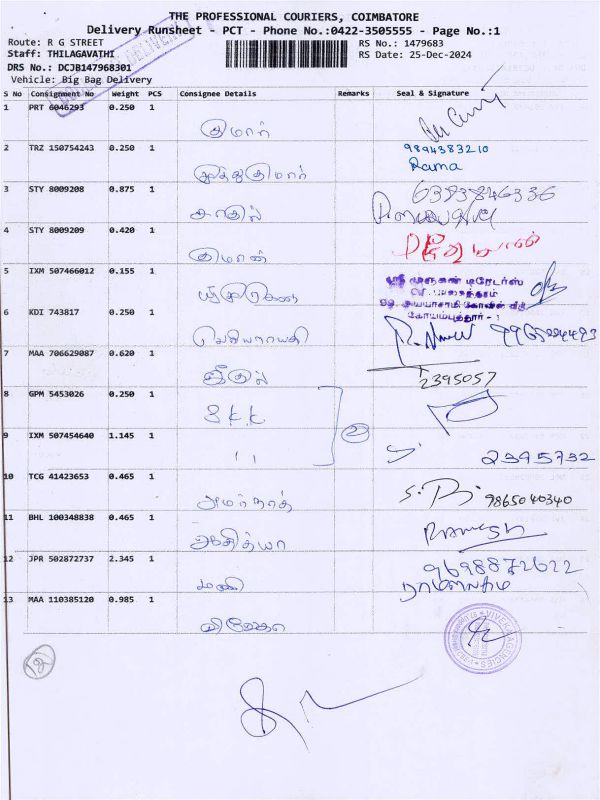 THE PROFESSIONAL COURIERS, COIMBATORE
Delivery Runsheet - PCT - Phone No.:0422-3505555 - Page No.:1
Route: R G STREET
RS No.: 1479683
Staff: THILAGAVATHI
RS Date: 25-Dec-2024
DRS No.: DCJB147968301
Vehicle: Big Bag Delivery
S No Consignment No Weight PCS Consignee Details Remarks Seal & Signature
1 PRT 6046293 0.250 1 குமார்
2 TRZ 150754243 0.250 1 முத்துகுமார் 9894383210
Rama
3 STY 8009208 0.875 1 6383846336
4 STY 8009209 0.420 1 குமரன்
5 IXM 507466012 0.155 1 ஸ்ரீ முருகன் டிரேடர்ஸ்
கோயம்புத்தூர் - 1
6 KDI 743817 0.250 1
7 MAA 706629087 0.620 1 2395057
8 GPM 5453026 0.250 1 S.K.K
9 IXM 507454640 1.145 1 " 2395732
10 TCG 41423653 0.465 1 அமர்நாத் 9865040340
11 BHL 100348838 0.465 1 ஆதித்யா Ramesh
12 JPR 502872737 2.345 1 மணி 9698872622
13 MAA 110385120 0.985 1
VIVEKA AGENCIES